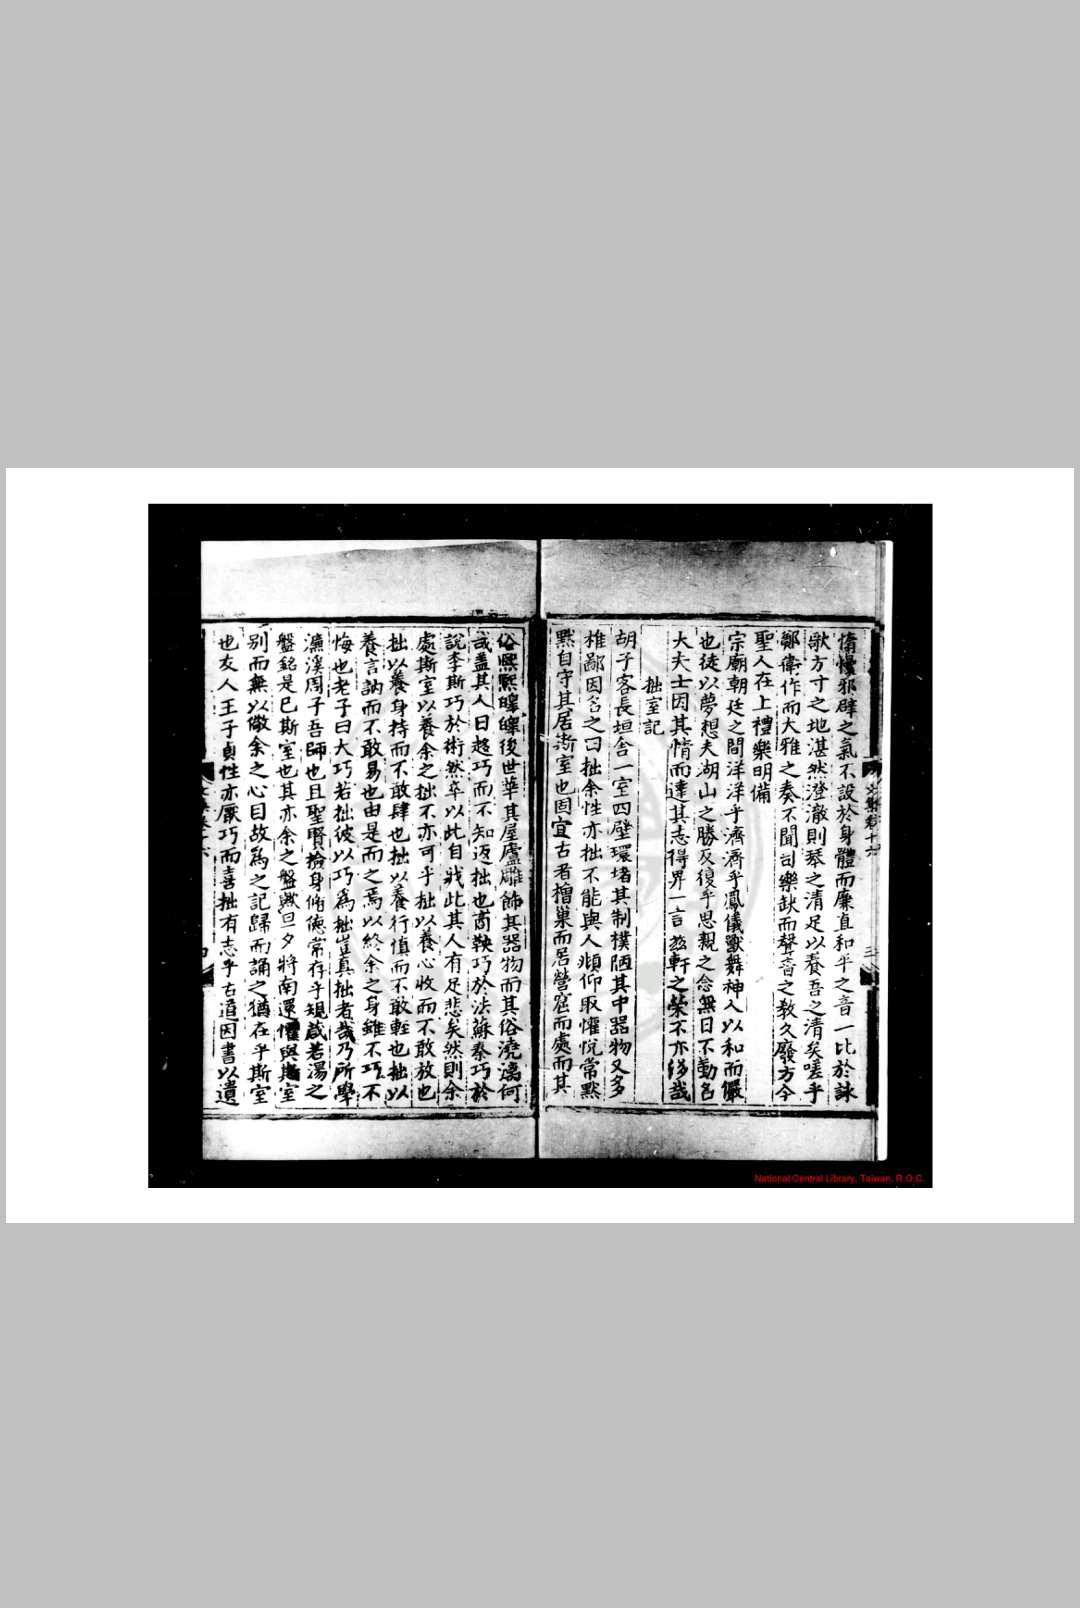 惰慢邪辟之氣不設於身體而廉直和平之音一比於詠
歌方寸之地湛然澄澈則琴之清足以養吾之清矣嗟乎
鄭衛作而大雅之奏不聞司樂缺而聲音之教久廢方今
聖人在上禮樂明備
宗廟朝廷之間洋洋乎濟濟乎鳳儀獸舞神人以和而儼
也徒以夢想夫湖山之勝反復乎思親之念無日不動名
大夫士因其情而達其志得畀一言兹軒之榮不亦侈哉
拙室記
胡子客長垣舍一室四壁環堵其制樸陋其中器物又多
椎鄙因名之曰拙余性亦拙不能與人頫仰取懽悦常默
默自守其居斯室也固宜古者橧巢而居營窟而處而其
俗熙熙皥皥後世華其屋廬雕飾其器物而其俗澆漓何
哉蓋其人日趍巧而不知返拙也商鞅巧於法蘇秦巧於
說李斯巧於術然卒以此自戕此其人有足悲矣然則余
處斯室以養余之拙不亦可乎拙以養心收而不敢放也
拙以養身持而不敢肆也拙以養行慎而不敢輕也拙以
養言訥而不敢易也由是而之焉以終余之身雖不巧不
悔也老子曰大巧若拙彼以巧為拙豈真拙者哉乃所學
濂溪周子吾師也且聖賢撿身脩德常存乎規箴若湯之
盤銘是已斯室也其亦余之盤歟旦夕將南還懼與斯室
别而無以儆余之心目故為之記歸而誦之猶在乎斯室
也友人王子貞性亦厭巧而喜拙有志乎古道因書以遺
文集卷十六
三
National Central Library, Taiwan, R.O.C.